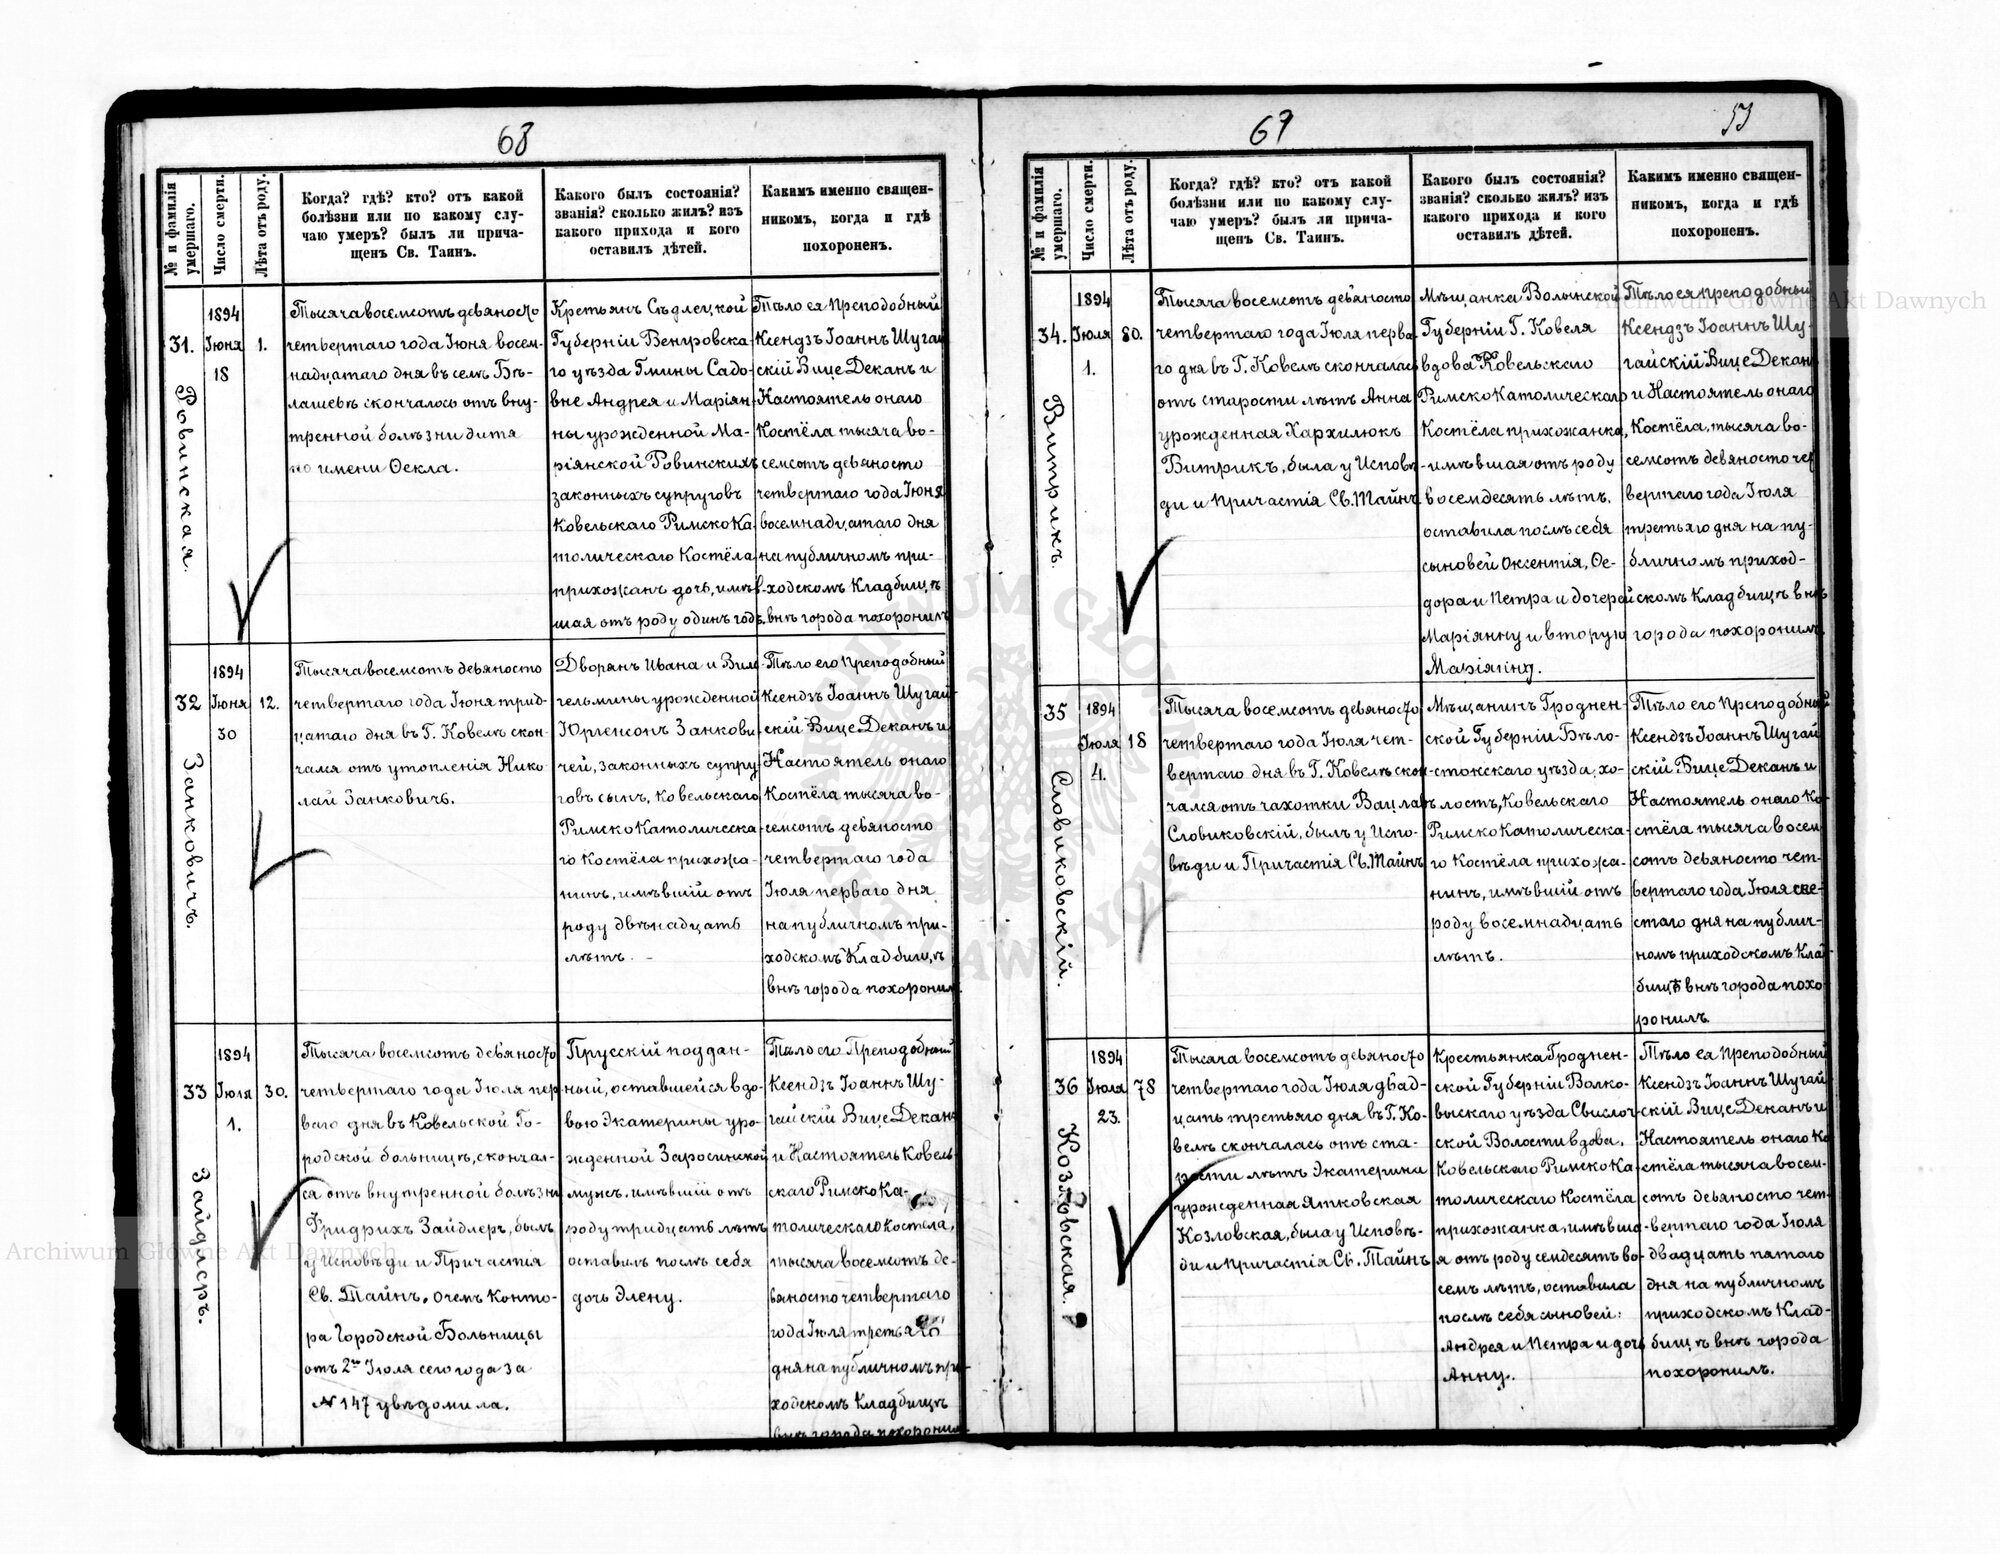 68
№ и фамилія умершаго.
Число смерти.
Лѣта отъ роду.
Когда? гдѣ? кто? отъ какой
болѣзни или по какому слу-
чаю умеръ? былъ ли прича-
щенъ Св. Таинъ.
Какого былъ состоянія?
званія? сколько жилъ? изъ
какого прихода и кого
оставилъ дѣтей.
Какимъ именно священ-
никомъ, когда и гдѣ
похороненъ.
31.
Ровинская.
1894
Іюня
18
1.
Тысяча восемсотъ девяносто
четвертаго года Іюня восем-
надцатаго дня въ селѣ Бѣ-
лашевѣ скончалось отъ вну-
тренной болѣзни дитя
по имени Ѳекла.
Крестьянъ Сѣдлецкой
Губерніи Венгровска-
го уѣзда Гмины Садо-
вне Андрея и Маріян-
ны урожденной Ма-
ріянской Ровинскихъ
законныхъ супруговъ
Ковельскаго Римско Ка-
толическаго Костёла
прихожанъ дочь, имѣв-
шая отъ роду одинъ годъ.
Тѣло ея Преподобный
Ксендзъ Іоаннъ Шугай
скій Вице Деканъ и
Настоятель онаго
Костёла тысяча во-
семсотъ девяносто
четвертаго года Іюня
восемнадцатаго дня
на публичномъ при-
ходскомъ Кладбищѣ
внѣ города похоронилъ
32
Занковичъ.
1894
Іюня
30
12.
Тысяча восемсотъ девяносто
четвертаго года Іюня трид-
цатаго дня въ Г. Ковелѣ скон-
чался отъ утопленія Нико-
лай Занковичъ.
Дворянъ Ивана и Виль-
гельмины урожденной
Юргенсонъ Занкови-
чей, законныхъ супру-
говъ сынъ, Ковельскаго
Римско Католическа-
го Костёла прихожа-
нинъ, имѣвшій отъ
роду двѣнадцать
лѣтъ.
Тѣло его Преподобный
Ксендзъ Іоаннъ Шугай-
скій Вице Деканъ и
Настоятель онаго
Костёла тысяча во-
семсотъ девяносто
четвертаго года
Іюля перваго дня
на публичномъ при-
ходскомъ Кладбищѣ
внѣ города похоронилъ.
33
Зайдлеръ.
1894
Іюля
1.
30.
Тысяча восемсотъ девяносто
четвертаго года Іюля пер
ваго дня въ Ковельской Го-
родской больницѣ, скончал-
ся отъ внутренной болѣзни
Фридрихъ Зайдлеръ, былъ
у Исповѣди и Причастія
Св. Тайнъ. о чемъ Конто-
ра Городской Больницы
отъ 2го Іюля сего года за
№ 147 увѣдомила.
Прусскій поддан-
ный, оставшейся вдо-
вою Экатерины уро-
жденной Заросинской
мужъ. имѣвшій отъ
роду тридцать лѣтъ
оставилъ послѣ себя
дочь Элену.
Тѣло его Преподобный
Ксендзъ Іоаннъ Шу-
гайскій Вице Деканъ
и Настоятель Ковель-
скаго Римско Ка-
толическаго Костёла,
тысяча восемсотъ де-
вяносто четвертаго
года Іюля третьяго
дня на публичномъ при-
ходскомъ Кладбищѣ
внѣ города похоронилъ
67
53
№ и фамилія умершаго.
Число смерти.
Лѣта отъ роду.
Когда? гдѣ? кто? отъ какой
болѣзни или по какому слу-
чаю умеръ? былъ ли прича-
щенъ Св. Таинъ.
Какого былъ состоянія?
званія? сколько жилъ? изъ
какого прихода и кого
оставилъ дѣтей.
Какимъ именно священ-
никомъ, когда и гдѣ
похороненъ.
34.
Витрикъ.
1894
Іюля
1.
80.
Тысяча восемсотъ девяносто
четвертаго года Іюля перва
го дня въ Г. Ковелѣ скончалась
отъ старости лѣтъ Анна
урожденная Хархилюкъ
Витрикъ, была у Исповѣ-
ди и Причастія Св. Тайнъ
Мѣщанка Волынской
Губерніи Г. Ковеля
вдова Ковельскаго
Римско Католическаго
Костёла прихожанка,
имѣвшая отъ роду
восемдесять лѣтъ.
оставила послѣ себя
сыновей Оксентія, Ѳе-
дора и Петра и дочерей
Маріянну и вторую
Маріянну.
Тѣло ея Преподобный
Ксендзъ Іоаннъ Шу-
гайскій Вице Деканъ
и Настоятель онаго
Костёла, тысяча во-
семсотъ девяносто чет
вертаго года Іюля
третьяго дня на пу-
бличномъ приход-
скомъ Кладбищѣ внѣ
города похоронилъ.
35
Словиковскій.
1894
Іюля
4.
18
Тысяча восемсотъ девяносто
четвертаго года Іюля чет-
вертаго дня въ Г. Ковелѣ скон-
чался отъ чахотки Вацлавъ
Словиковскій, былъ у Испо-
вѣди и Причастія Св. Тайнъ
Мѣщанинъ Гроднен-
ской Губерніи Бѣло-
стокскаго уѣзда, хо-
лостъ, Ковельскаго
Римско Католическа-
го Костёла прихожа-
нинъ, имѣвшій отъ
роду восемнадцать
лѣтъ.
Тѣло его Преподобный
Ксендзъ Іоаннъ Шугай
скій Вице Деканъ и
Настоятель онаго Ко-
стёла тысяча восем
сотъ девяносто чет-
вертаго года Іюля ше-
стаго дня на публич-
номъ приходскомъ Клад-
бищѣ внѣ города похо
ронилъ
36
Козловская.
1894
Іюля
23.
78
Тысяча восемсотъ девяносто
четвертаго года Іюля двад-
цать третьяго дня въ Г. Ко-
велѣ скончалась отъ ста-
рости лѣтъ Экатерини
урожденная Ятковская
Козловская, была у Исповѣ-
ди и Причастія Св. Тайнъ
Крестьянка Гроднен-
ской Губерніи Волко-
выскаго уѣзда Свислоч-
ской Волости вдова.
Ковельскаго Римско Ка-
толическаго Костёла
прихожанка, имѣвша-
я отъ роду семдесятъ во-
семь лѣтъ, оставила
послѣ себя сыновей:
Андрея и Петра и дочь
Анну.
Тѣло ея Преподобный
Ксендзъ Іоаннъ Шугай-
скій Вице Деканъ и
Настоятель онаго Ко
стёла тысяча восем-
сотъ девяносто чет-
вертаго года Іюля
двадцать пятаго
дня на публичномъ
приходскомъ Клад-
бищѣ внѣ города
похоронилъ.
Archiwum Główne Akt Dawnych
Archiwum Główne Akt Dawnych
ARCHIWUM GŁÓWNE AKT DAWNYCH